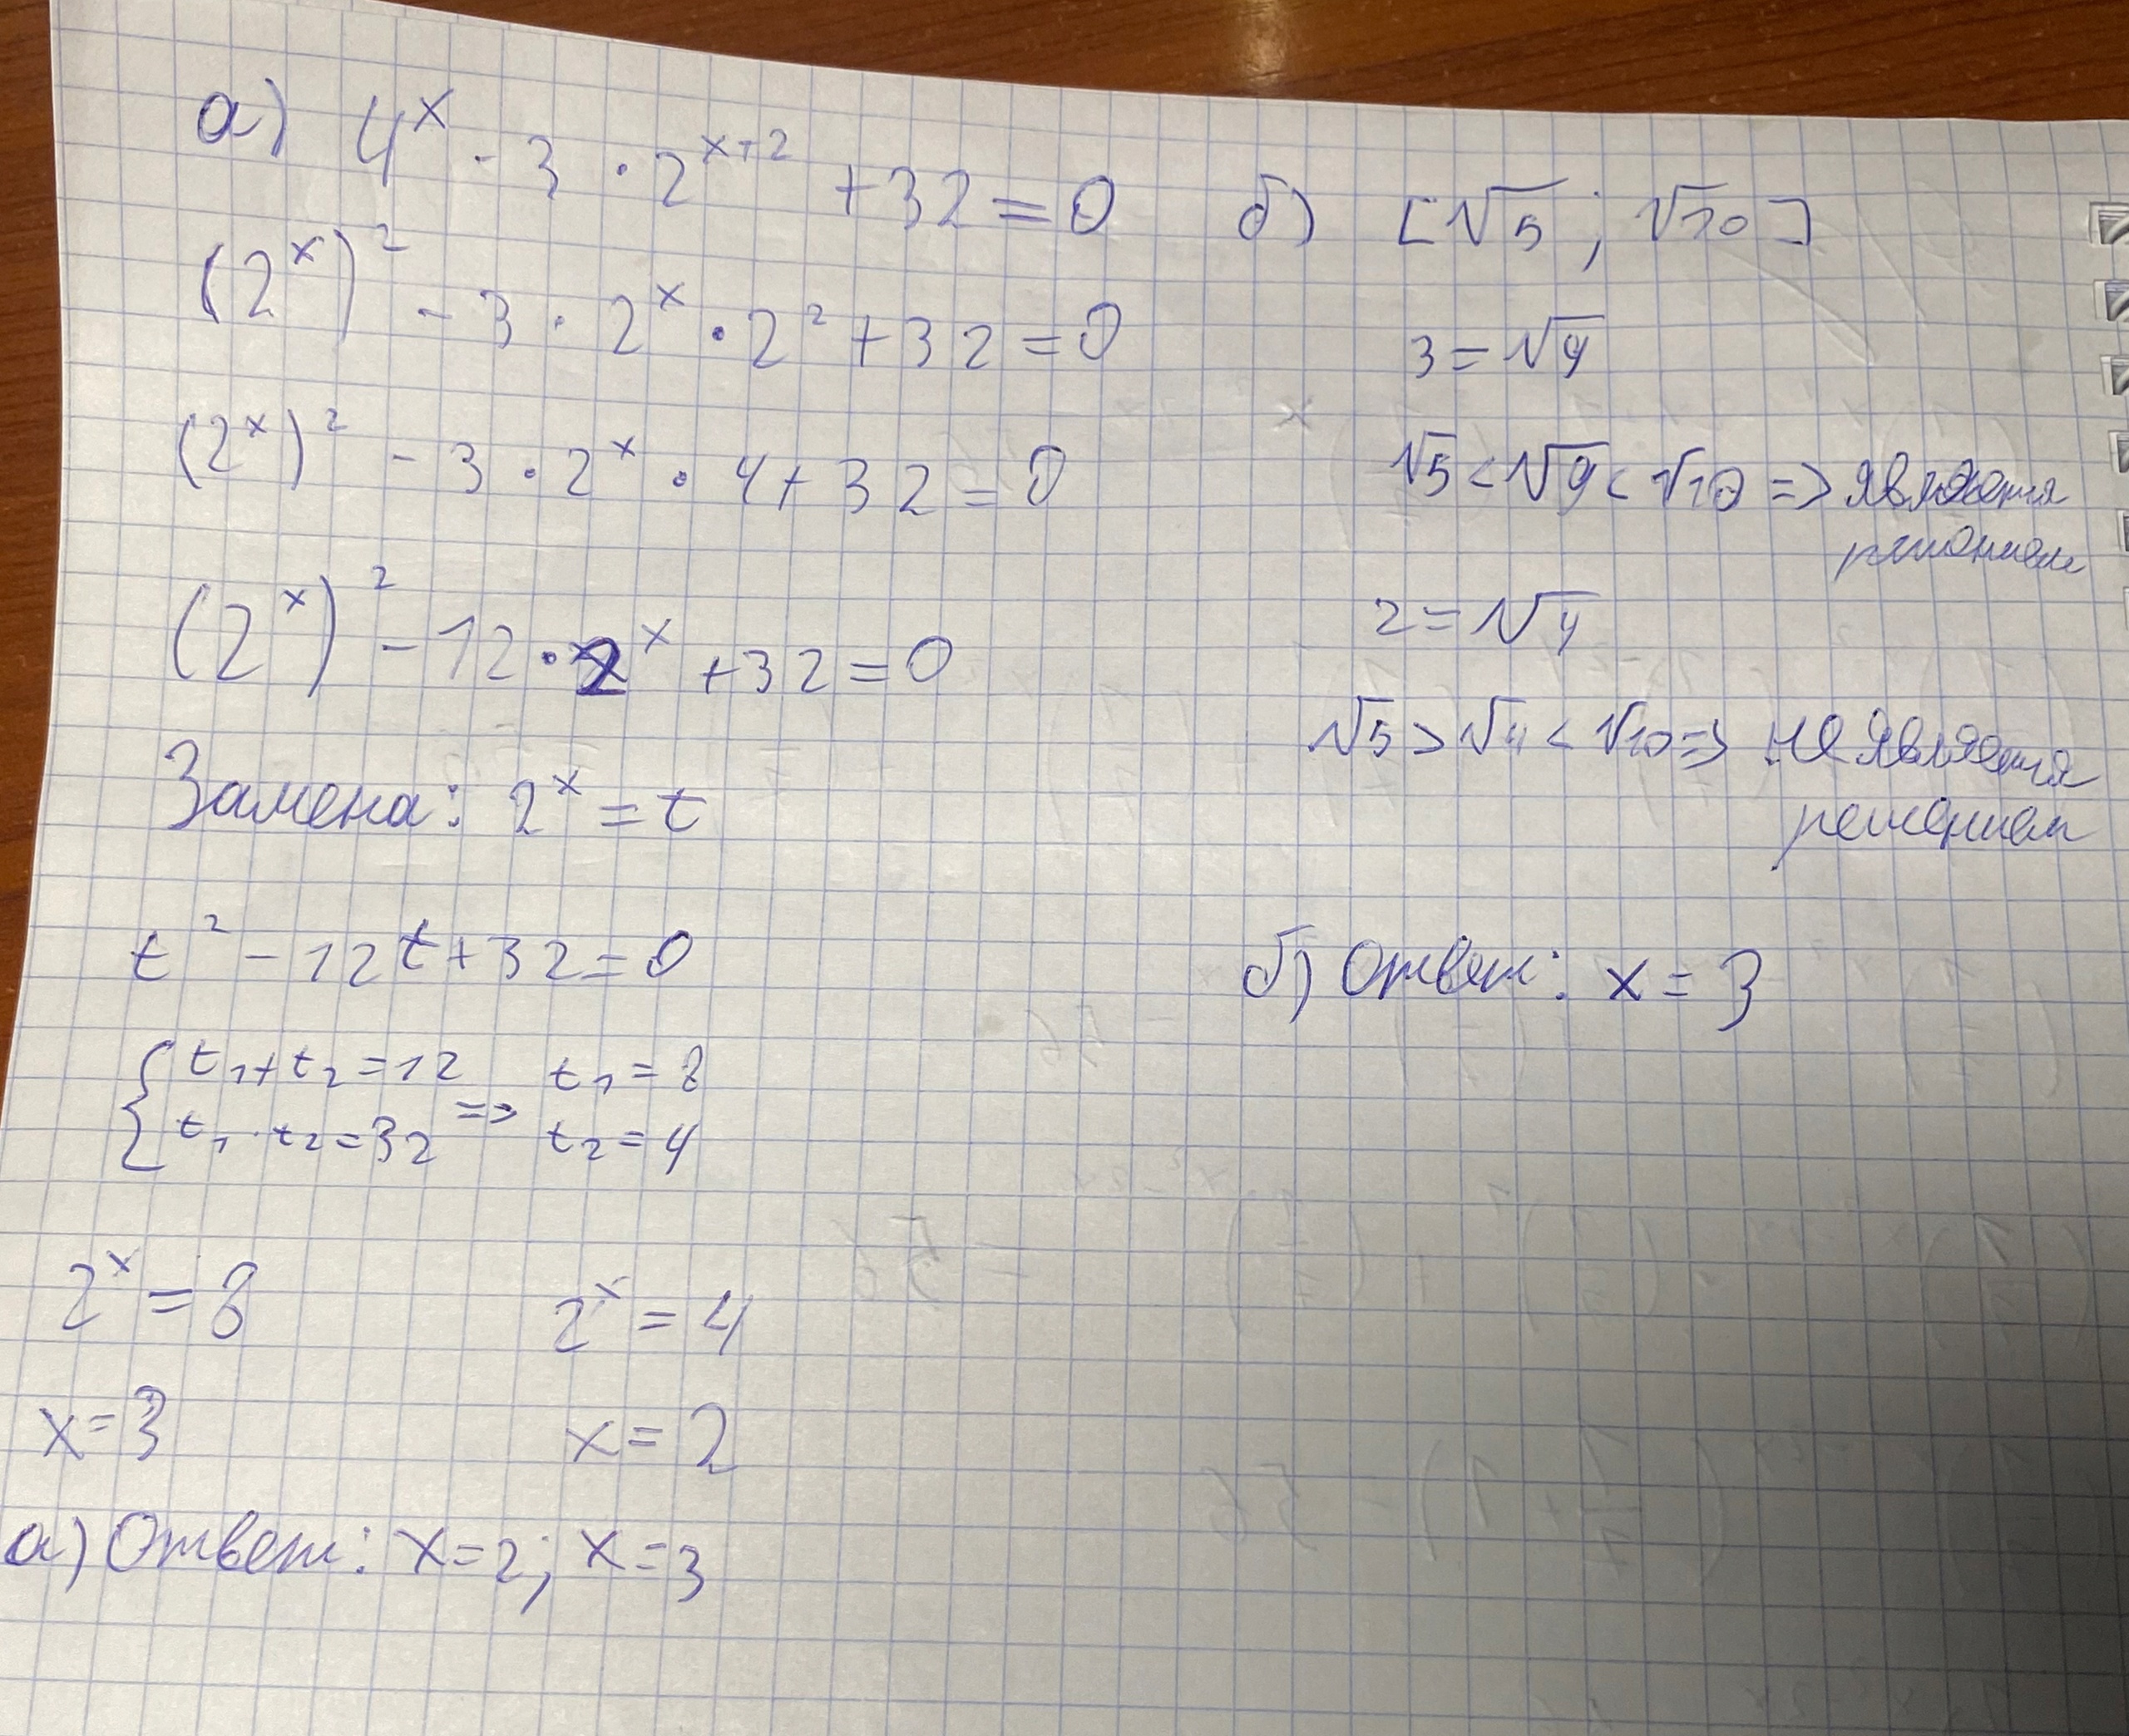 а) 4^x - 3 · 2^(x+2) + 32 = 0
(2^x)^2 - 3 · 2^x · 2^2 + 32 = 0
(2^x)^2 - 3 · 2^x · 4 + 32 = 0
(2^x)^2 - 12 · 2^x + 32 = 0
Замена: 2^x = t
t^2 - 12t + 32 = 0
{ t₁ + t₂ = 12 => t₁ = 8
t₁ · t₂ = 32 t₂ = 4
2^x = 8 2^x = 4
x = 3 x = 2
а) Ответ: x = 2; x = 3
б) [√5; √10]
3 = √9
√5 < √9 < √10 => является
решением
2 = √4
√5 > √4 < √10 => не является
решением
б) Ответ: x = 3